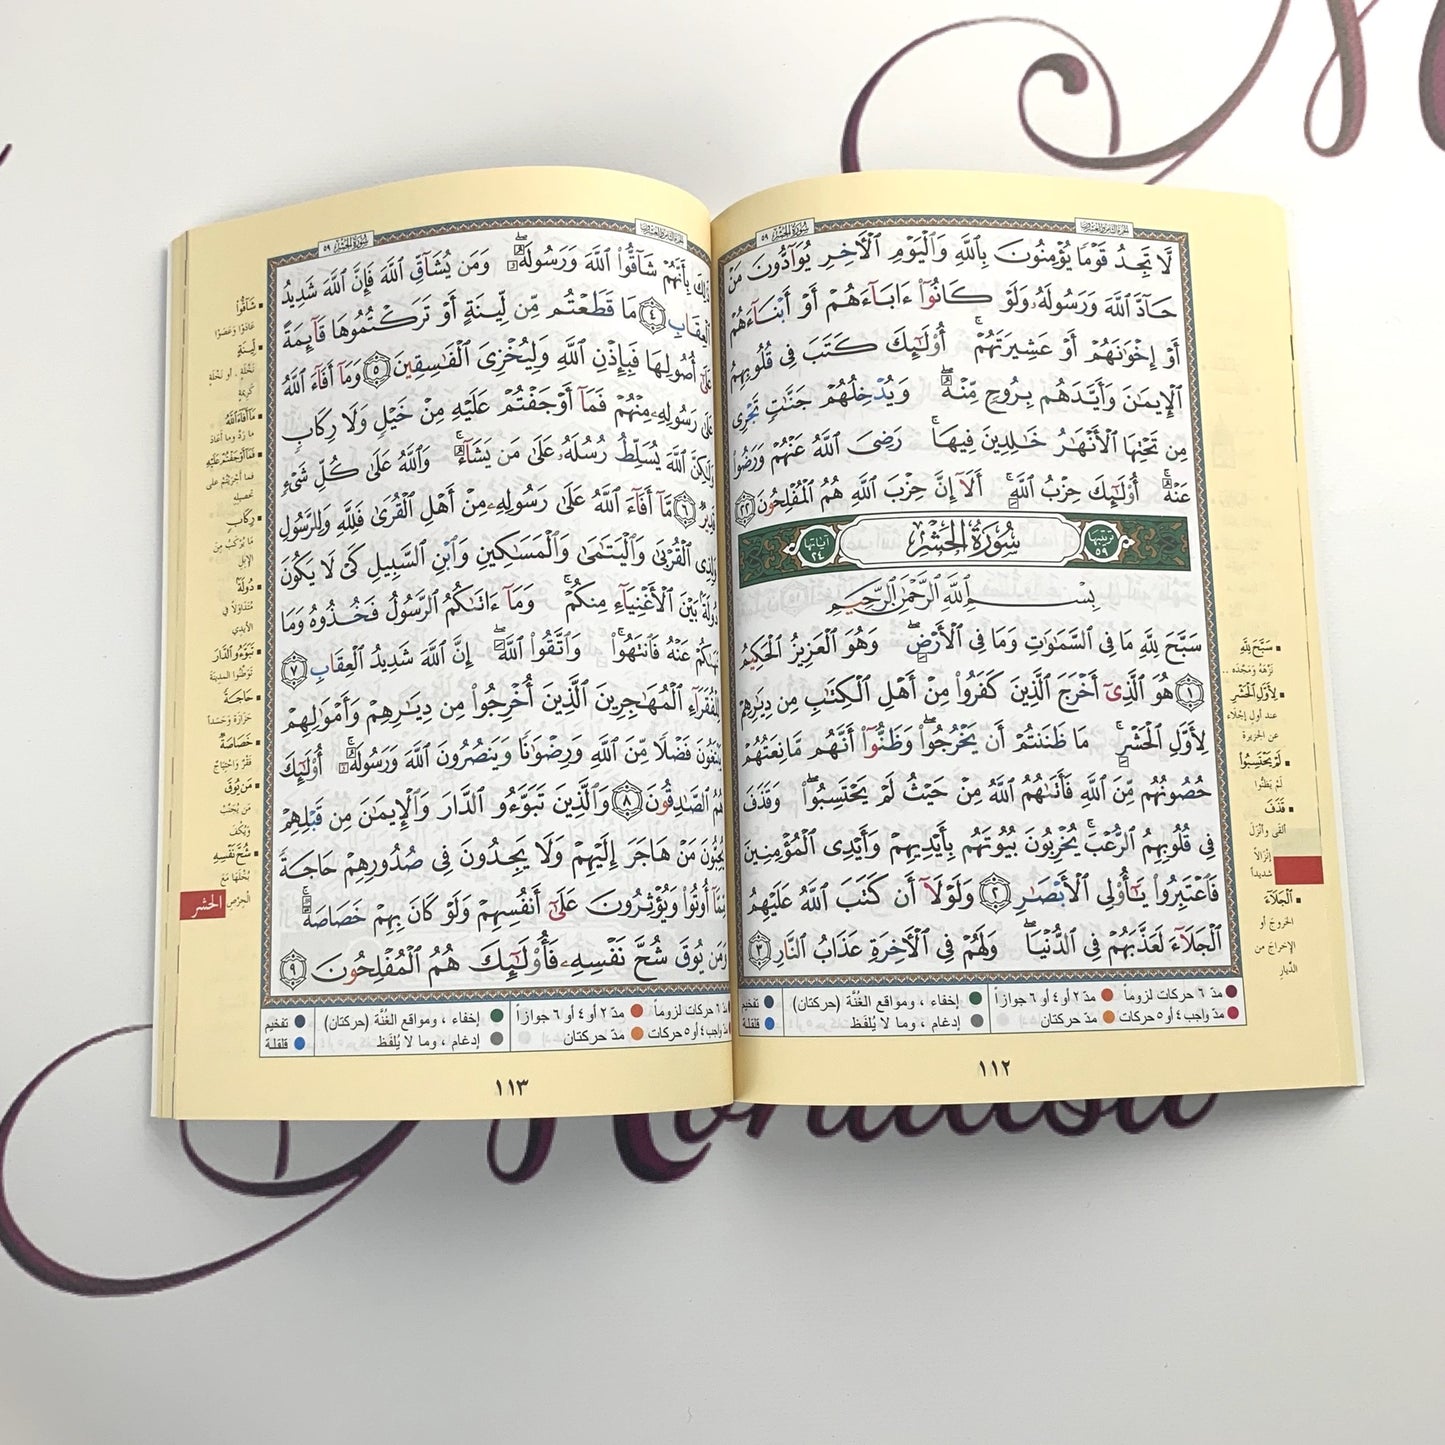 الجزء الثامن والعشرون
سورة الحشر ٥٩
لَّا تَجِدُ قَوْمًا يُؤْمِنُونَ بِٱللَّهِ وَٱلْيَوْمِ ٱلْأَخِرِ يُوَآدُّونَ مَنْ
حَآدَّ ٱللَّهَ وَرَسُولَهُۥ وَلَوْ كَانُوٓا۟ ءَابَآءَهُمْ أَوْ أَبْنَآءَهُمْ
أَوْ إِخْوَٰنَهُمْ أَوْ عَشِيرَتَهُمْ ۚ أُو۟لَٰٓئِكَ كَتَبَ فِى قُلُوبِهِمُ
ٱلْإِيمَٰنَ وَأَيَّدَهُم بِرُوحٍ مِّنْهُ ۖ وَيُدْخِلُهُمْ جَنَّٰتٍ تَجْرِى
مِن تَحْتِهَا ٱلْأَنْهَٰرُ خَٰلِدِينَ فِيهَا ۚ رَضِىَ ٱللَّهُ عَنْهُمْ وَرَضُوا۟
عَنْهُ ۚ أُو۟لَٰٓئِكَ حِزْبُ ٱللَّهِ ۚ أَلَآ إِنَّ حِزْبَ ٱللَّهِ هُمُ ٱلْمُفْلِحُونَ ٢٢
ترتيبها ٥٩ سُورَةُ الحَشْرِ آياتها ٢٤
بِسْمِ ٱللَّهِ ٱلرَّحْمَٰنِ ٱلرَّحِيمِ
سَبَّحَ لِلَّهِ مَا فِى ٱلسَّمَٰوَٰتِ وَمَا فِى ٱلْأَرْضِ ۖ وَهُوَ ٱلْعَزِيزُ ٱلْحَكِيمُ
١ هُوَ ٱلَّذِىٓ أَخْرَجَ ٱلَّذِينَ كَفَرُوا۟ مِنْ أَهْلِ ٱلْكِتَٰبِ مِن دِيَٰرِهِمْ
لِأَوَّلِ ٱلْحَشْرِ ۚ مَا ظَنَنتُمْ أَن يَخْرُجُوا۟ ۖ وَظَنُّوٓا۟ أَنَّهُم مَّانِعَتُهُمْ
حُصُونُهُم مِّنَ ٱللَّهِ فَأَتَىٰهُمُ ٱللَّهُ مِنْ حَيْثُ لَمْ يَحْتَسِبُوا۟ ۖ وَقَذَفَ
فِى قُلُوبِهِمُ ٱلرُّعْبَ ۚ يُخْرِبُونَ بُيُوتَهُم بِأَيْدِيهِمْ وَأَيْدِى ٱلْمُؤْمِنِينَ
فَٱعْتَبِرُوا۟ يَٰٓأُو۟لِى ٱلْأَبْصَٰرِ ٢ وَلَوْلَآ أَن كَتَبَ ٱللَّهُ عَلَيْهِمُ
ٱلْجَلَآءَ لَعَذَّبَهُمْ فِى ٱلدُّنْيَا ۖ وَلَهُمْ فِى ٱلْأَخِرَةِ عَذَابُ ٱلنَّارِ ٣
سَبَّحَ لِلَّهِ
نَزَّهَهُ وَمَجَّدَه ..
لِأَوَّلِ ٱلْحَشْرِ
عند أول إجلاء
عن الجزيرة
لَمْ يَحْتَسِبُوا۟
لَمْ يَظُنُّوا
قَذَفَ
ألقى وأنزل
إنزالاً
شديداً
ٱلْجَلَآءَ
الخروج أو
الإخراج من
الديار
مدّ ٦ حركات لزوماً
مدّ ٢ أو ٤ أو ٦ جوازاً
إخفاء ، ومواقع الغُنَّة (حركتان)
مدّ واجب ٤ أو ٥ حركات
مدّ حركتان
إدغام ، وما لا يُلفَظ
١١٢
سورة الحشر ٥٩
ذَٰلِكَ بِأَنَّهُمْ شَآقُّوا۟ ٱللَّهَ وَرَسُولَهُۥ ۖ وَمَن يُشَآقِّ ٱللَّهَ فَإِنَّ ٱللَّهَ شَدِيدُ
ٱلْعِقَابِ ٤ مَا قَطَعْتُم مِّن لِّينَةٍ أَوْ تَرَكْتُمُوهَا قَآئِمَةً
عَلَىٰٓ أُصُولِهَا فَبِإِذْنِ ٱللَّهِ وَلِيُخْزِىَ ٱلْفَٰسِقِينَ ٥ وَمَآ أَفَآءَ ٱللَّهُ
عَلَىٰ رَسُولِهِۦ مِنْهُمْ فَمَآ أَوْجَفْتُمْ عَلَيْهِ مِنْ خَيْلٍ وَلَا رِكَابٍ
وَلَٰكِنَّ ٱللَّهَ يُسَلِّطُ رُسُلَهُۥ عَلَىٰ مَن يَشَآءُ ۚ وَٱللَّهُ عَلَىٰ كُلِّ شَىْءٍ
قَدِيرٌ ٦ مَّآ أَفَآءَ ٱللَّهُ عَلَىٰ رَسُولِهِۦ مِنْ أَهْلِ ٱلْقُرَىٰ فَلِلَّهِ وَلِلرَّسُولِ
وَلِذِى ٱلْقُرْبَىٰ وَٱلْيَتَٰمَىٰ وَٱلْمَسَٰكِينِ وَٱبْنِ ٱلسَّبِيلِ كَىْ لَا يَكُونَ
دُولَةًۢ بَيْنَ ٱلْأَغْنِيَآءِ مِنكُمْ ۚ وَمَآ ءَاتَىٰكُمُ ٱلرَّسُولُ فَخُذُوهُ وَمَا
نَهَىٰكُمْ عَنْهُ فَٱنتَهُوا۟ ۚ وَٱتَّقُوا۟ ٱللَّهَ ۖ إِنَّ ٱللَّهَ شَدِيدُ ٱلْعِقَابِ ٧
لِلْفُقَرَآءِ ٱلْمُهَٰجِرِينَ ٱلَّذِينَ أُخْرِجُوا۟ مِن دِيَٰرِهِمْ وَأَمْوَٰلِهِمْ
يَبْتَغُونَ فَضْلًا مِّنَ ٱللَّهِ وَرِضْوَٰنًا وَيَنصُرُونَ ٱللَّهَ وَرَسُولَهُۥٓ ۚ أُو۟لَٰٓئِكَ
هُمُ ٱلصَّٰدِقُونَ ٨ وَٱلَّذِينَ تَبَوَّءُو ٱلدَّارَ وَٱلْإِيمَٰنَ مِن قَبْلِهِمْ
يُحِبُّونَ مَنْ هَاجَرَ إِلَيْهِمْ وَلَا يَجِدُونَ فِى صُدُورِهِمْ حَاجَةً
مِّمَّآ أُوتُوا۟ وَيُؤْثِرُونَ عَلَىٰٓ أَنفُسِهِمْ وَلَوْ كَانَ بِهِمْ خَصَاصَةٌ ۚ
وَمَن يُوقَ شُحَّ نَفْسِهِۦ فَأُو۟لَٰٓئِكَ هُمُ ٱلْمُفْلِحُونَ ٩
شَآقُّوا۟
عَادَوْا وَعَصَوْا
لِينَةٍ
نَخْلَةٍ ، أو نخلةٍ
كريمةٍ
مَآ أَفَآءَ ٱللَّهُ
ما ردّ وما أعاد
فَمَآ أَوْجَفْتُمْ عَلَيْهِ
فما أجريتم على
تحصيله
رِكَابٍ
ما يُركب من
الإبل
دُولَةًۢ
مُتَداوَلاً في
الأيدي
تَبَوَّءُو ٱلدَّارَ
توطّنوا المدينة
حَاجَةً
حزازة وحسداً
خَصَاصَةٌ
فقرٌ واحتياج
مَن يُوقَ
من يُجنَّب
ويُكفَ
شُحَّ نَفْسِهِ
بُخلها مع
الحِرص
الحشر
مدّ ٢ أو ٤ أو ٦ جوازاً
إخفاء ، ومواقع الغُنَّة (حركتان)
تفخيم
مدّ واجب ٤ أو ٥ حركات
مدّ حركتان
إدغام ، وما لا يُلفَظ
قلقلة
١١٣